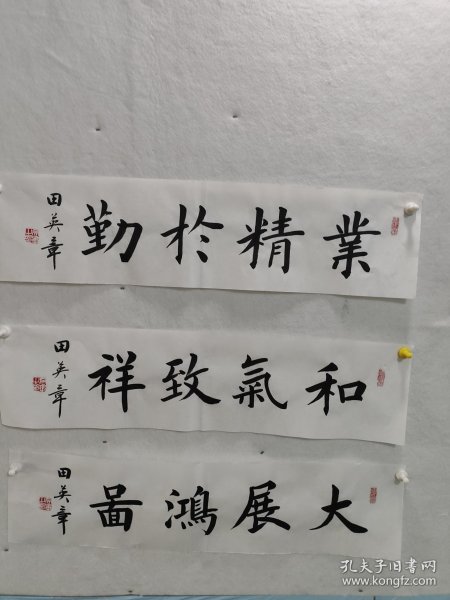 業精於勤
田英章
和氣致祥
田英章
大展鴻啚
田英章
孔夫子旧书网
www.kongfz.com